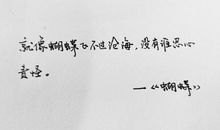 就像蝴蝶飞不过沧海，没有谁忍心
责怪。
—《蝴蝶》